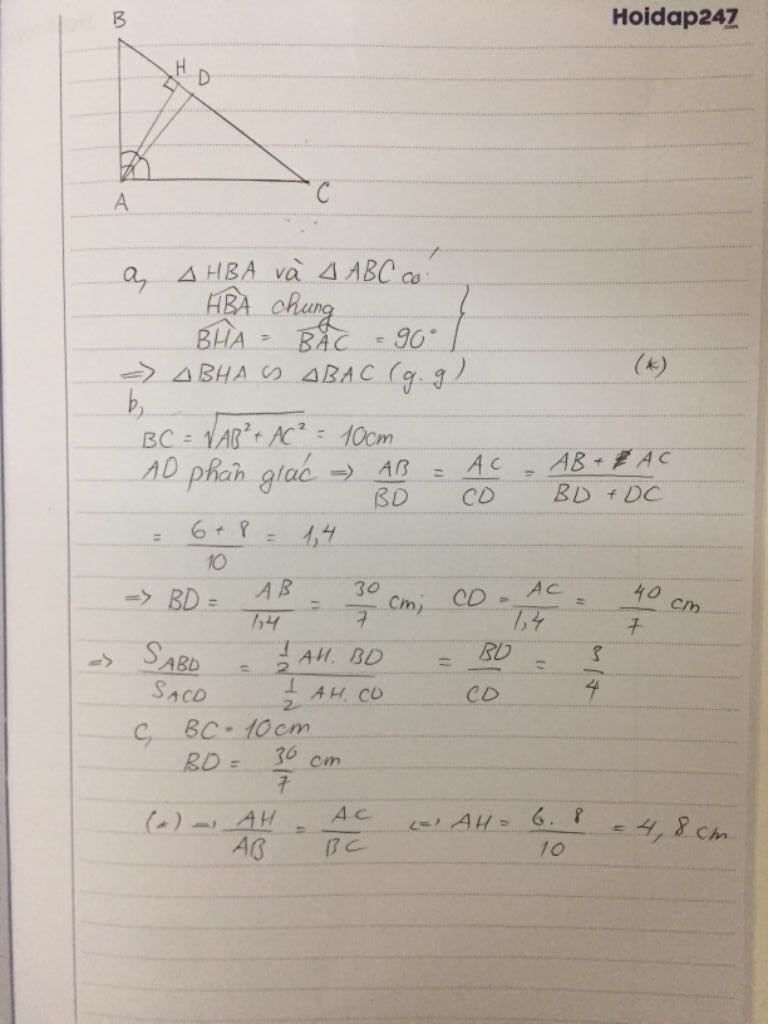 Hoidap247.com
B
H D
A
C
a, △HBA và △ABC có:
HBA chung
BHA = BAC = 90°
=> △BHA ∽ △BAC (g.g) (*)
b,
BC = √AB² + AC² = 10cm
AD phân giác => AB/BD = AC/CD = AB + AC/BD + DC
= 6 + 8/10 = 1,4
=> BD = AB/1,4 = 30/7 cm; CD = AC/1,4 = 40/7 cm
=> S_ABD/S_ACD = 1/2 AH. BD/1/2 AH. CD = BD/CD = 3/4
c, BC = 10cm
BD = 30/7 cm
(*) => AH/AB = AC/BC <=> AH = 6.8/10 = 4,8 cm